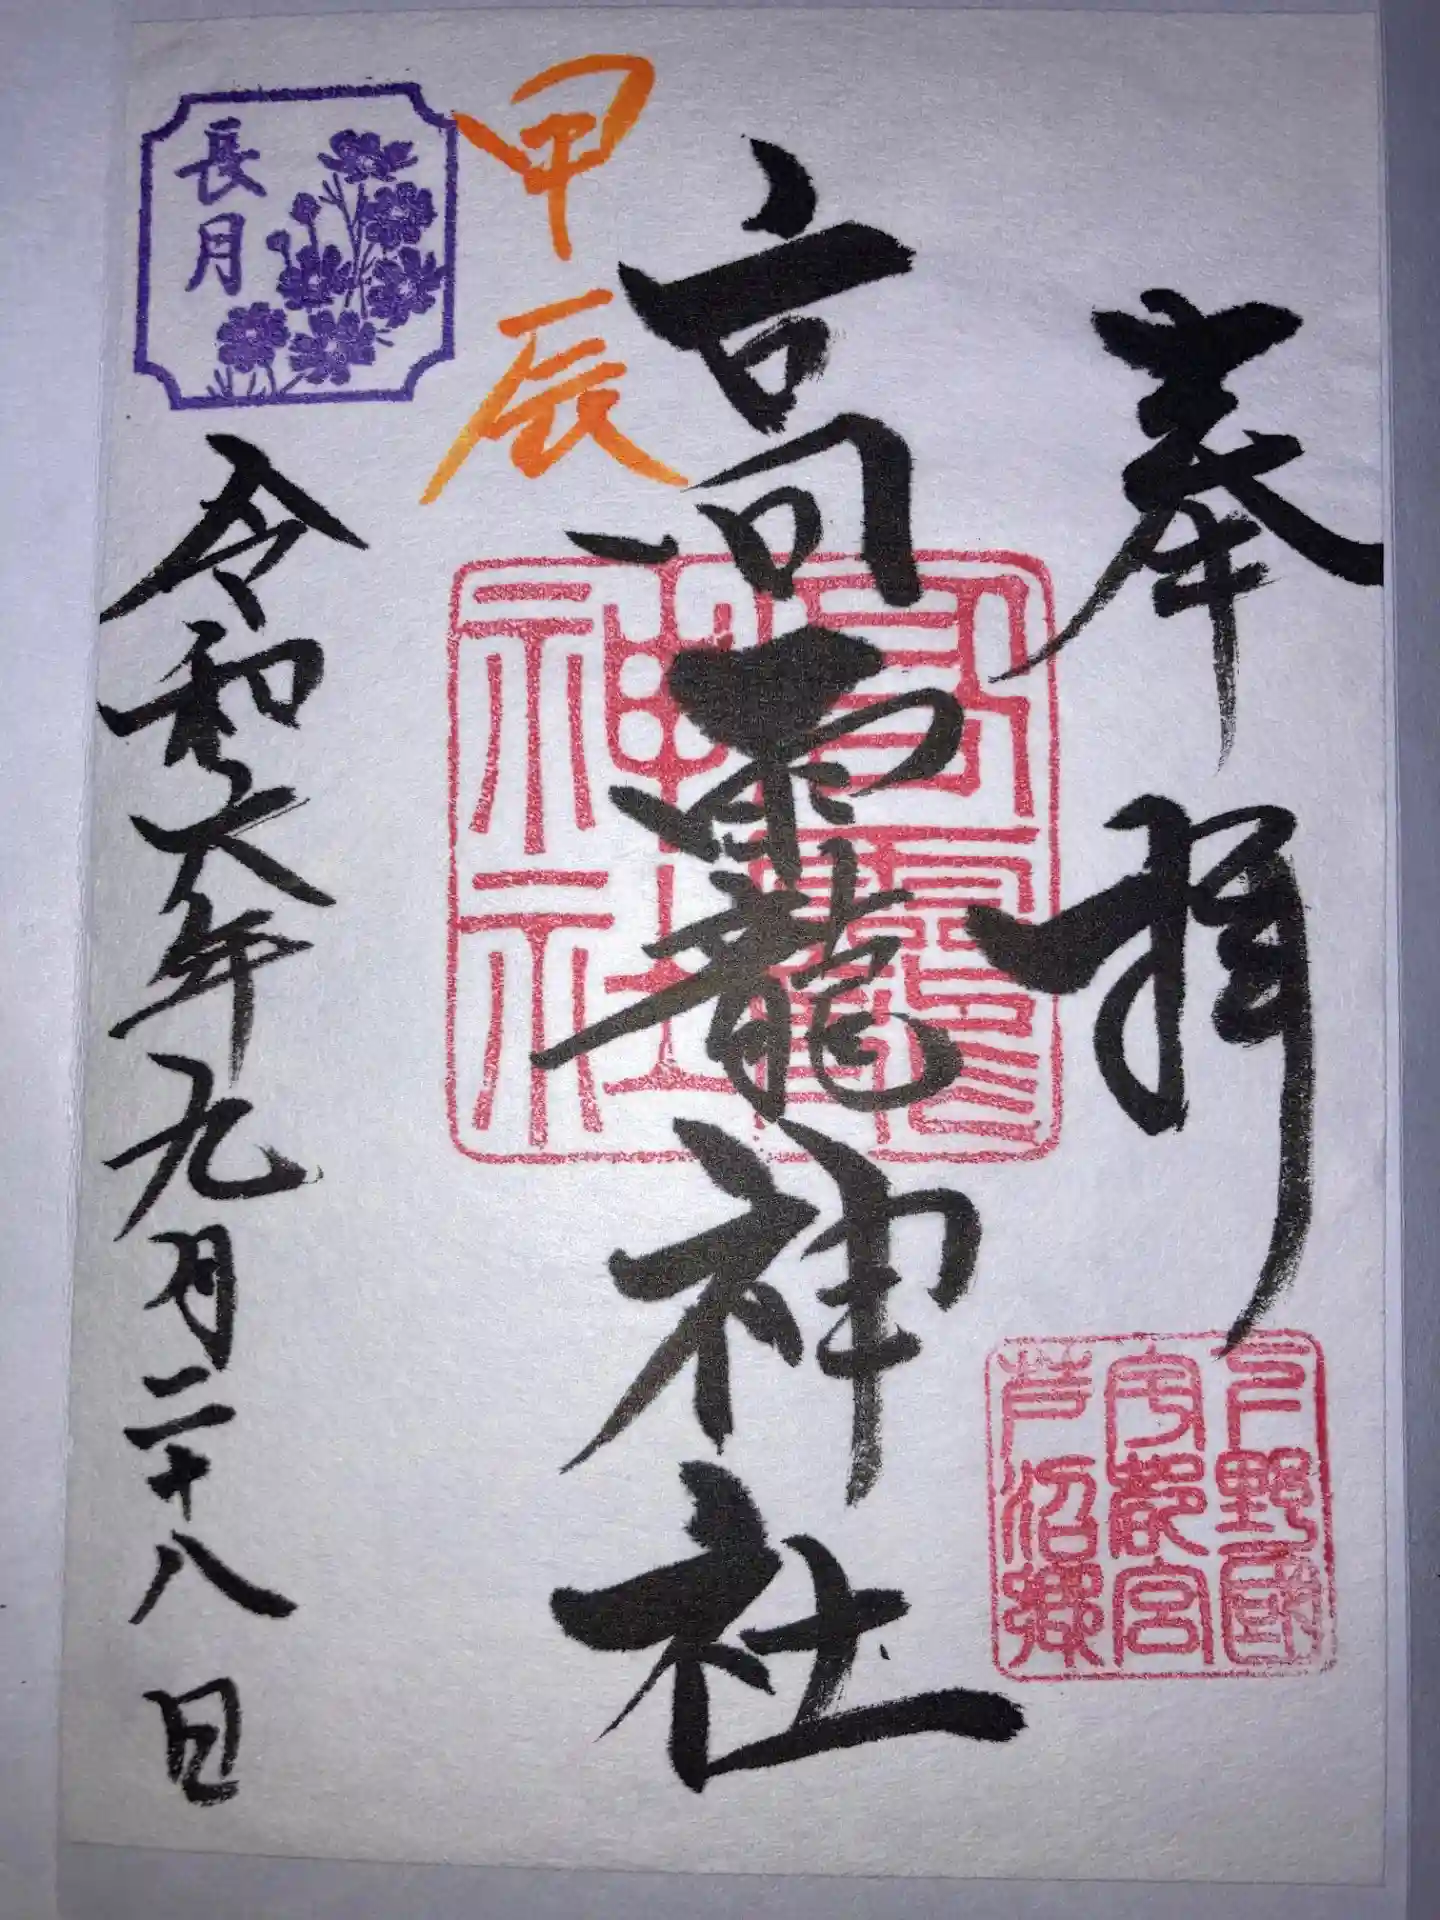 奉拝
下野國
宇都宮
芦沼郷
高龗神社
高龗
神社
甲辰
長月
令和六年九月二十八日